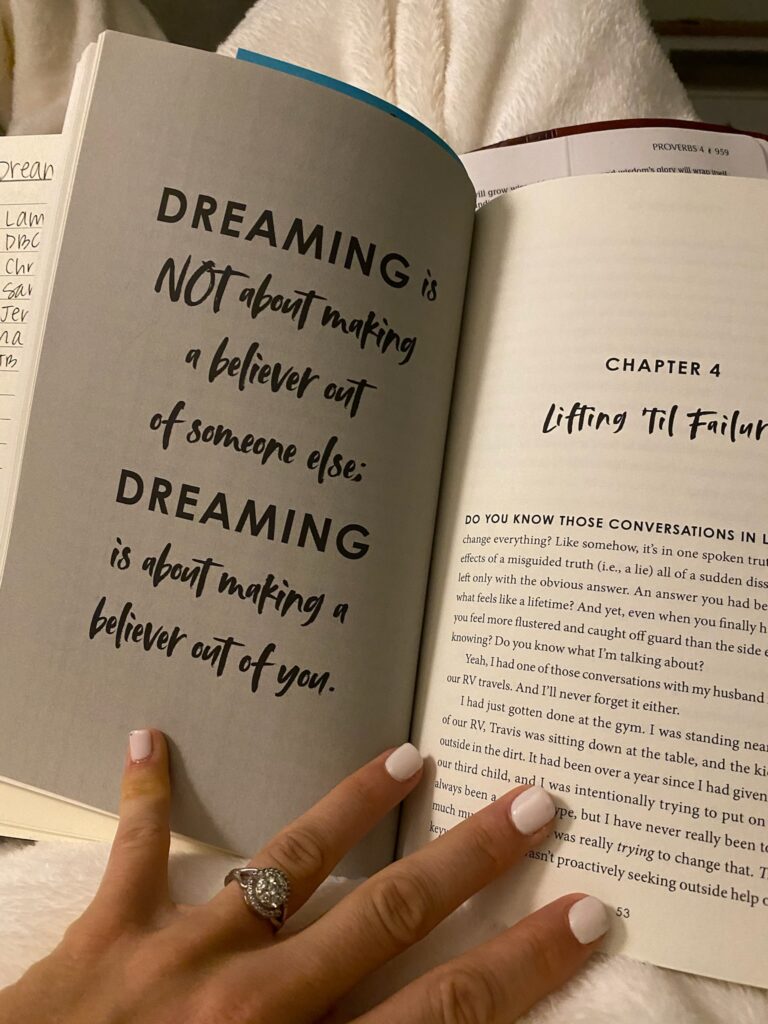 Drean
Lam
DBC
Chr
Sar
Jer
na
TB
DREAMING is
NOT about making
a believer out
of someone else;
DREAMING
is about making a
believer out of you.
PROVERBS 4
959
wisdom's glory will wrap itself
will grow
CHAPTER 4
Lifting 'Til Failur
DO YOU KNOW THOSE CONVERSATIONS IN L
change everything? Like somehow, it's in one spoken trut
effects of a misguided truth (i.e., a lie) all of a sudden diss
left only with the obvious answer. An answer you had be
what feels like a lifetime? And yet, even when you finally h
you feel more flustered and caught off guard than the side e
knowing? Do you know what I'm talking about?
Yeah, I had one of those conversations with my husband
our RV travels. And I'll never forget it either.
I had just gotten done at the gym. I was standing nea
of our RV, Travis was sitting down at the table, and the ki
outside in the dirt. It had been over a year since I had given
our third child, and I was intentionally trying to put on
always been a ype, but I have never really been to
much mu was really trying to change that. T
key asn't proactively seeking outside help o
53